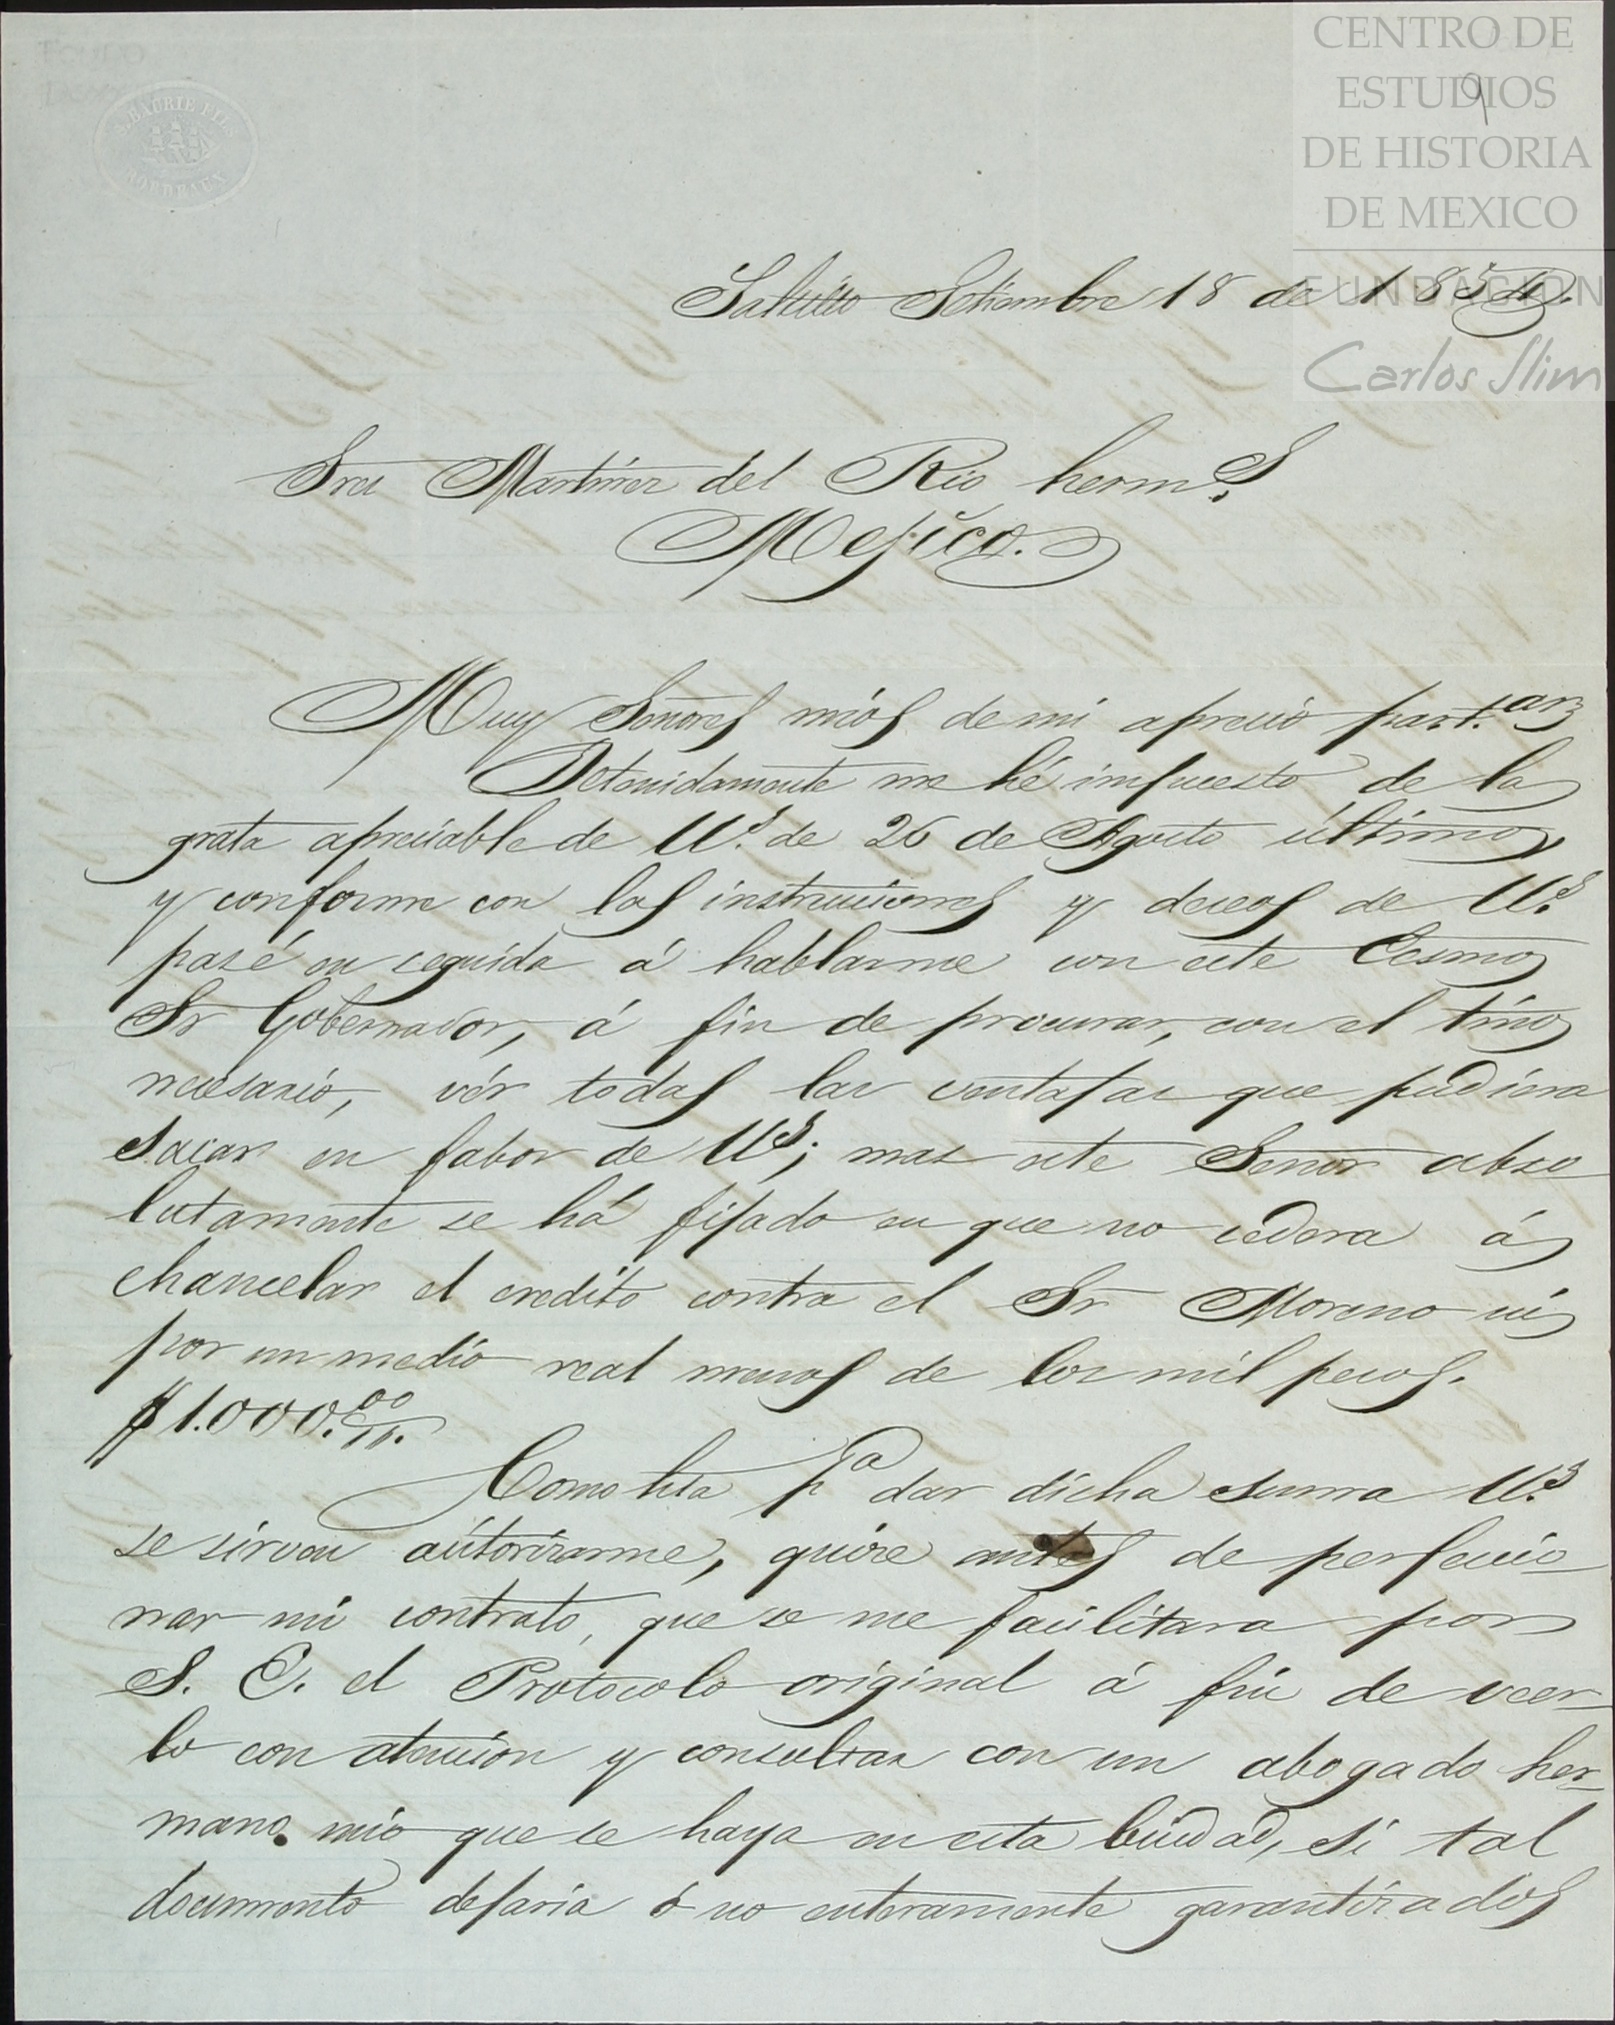 CENTRO DE
ESTUDIOS
DE HISTORIA
DE MEXICO
FUNDACION
Carlos Slim
9
BORDEAUX
Saltillo Setiembre 18 de 185
Sres Martinez del Rio herm.s
Mejico.
Muy Señores mios de mi aprecio part.ar
Detenidamente me hé impuesto de la
grata apreciable de U.s de 26 de Agosto último,
y conforme con las instrucciones y deseos de U.s
pasé en seguida á hablarme con este Ecsmo
Sr Gobernador, á fin de procurar, con el tino
necesario, vér todas las ventajas que pudiera
sacar en fabor de U.s; mas este Señor abso
lutamente se há fijado en que no cedera á
chancelar el credito contra el Sr Moreno ni
por un medio real menos de los mil pesos.
$1.000.00
Como hta pa dar dicha suma U.s
se sirven autorizarme, quise antes de perfeccio-
nar mi contrato, que se me facilitara por
S. E. el Protocolo original á fin de veer-
lo con atencion y consultar con un abogado her-
mano mio que se haya en esta Ciudad, si tal
documento dejaria ó no enteramente garantizados